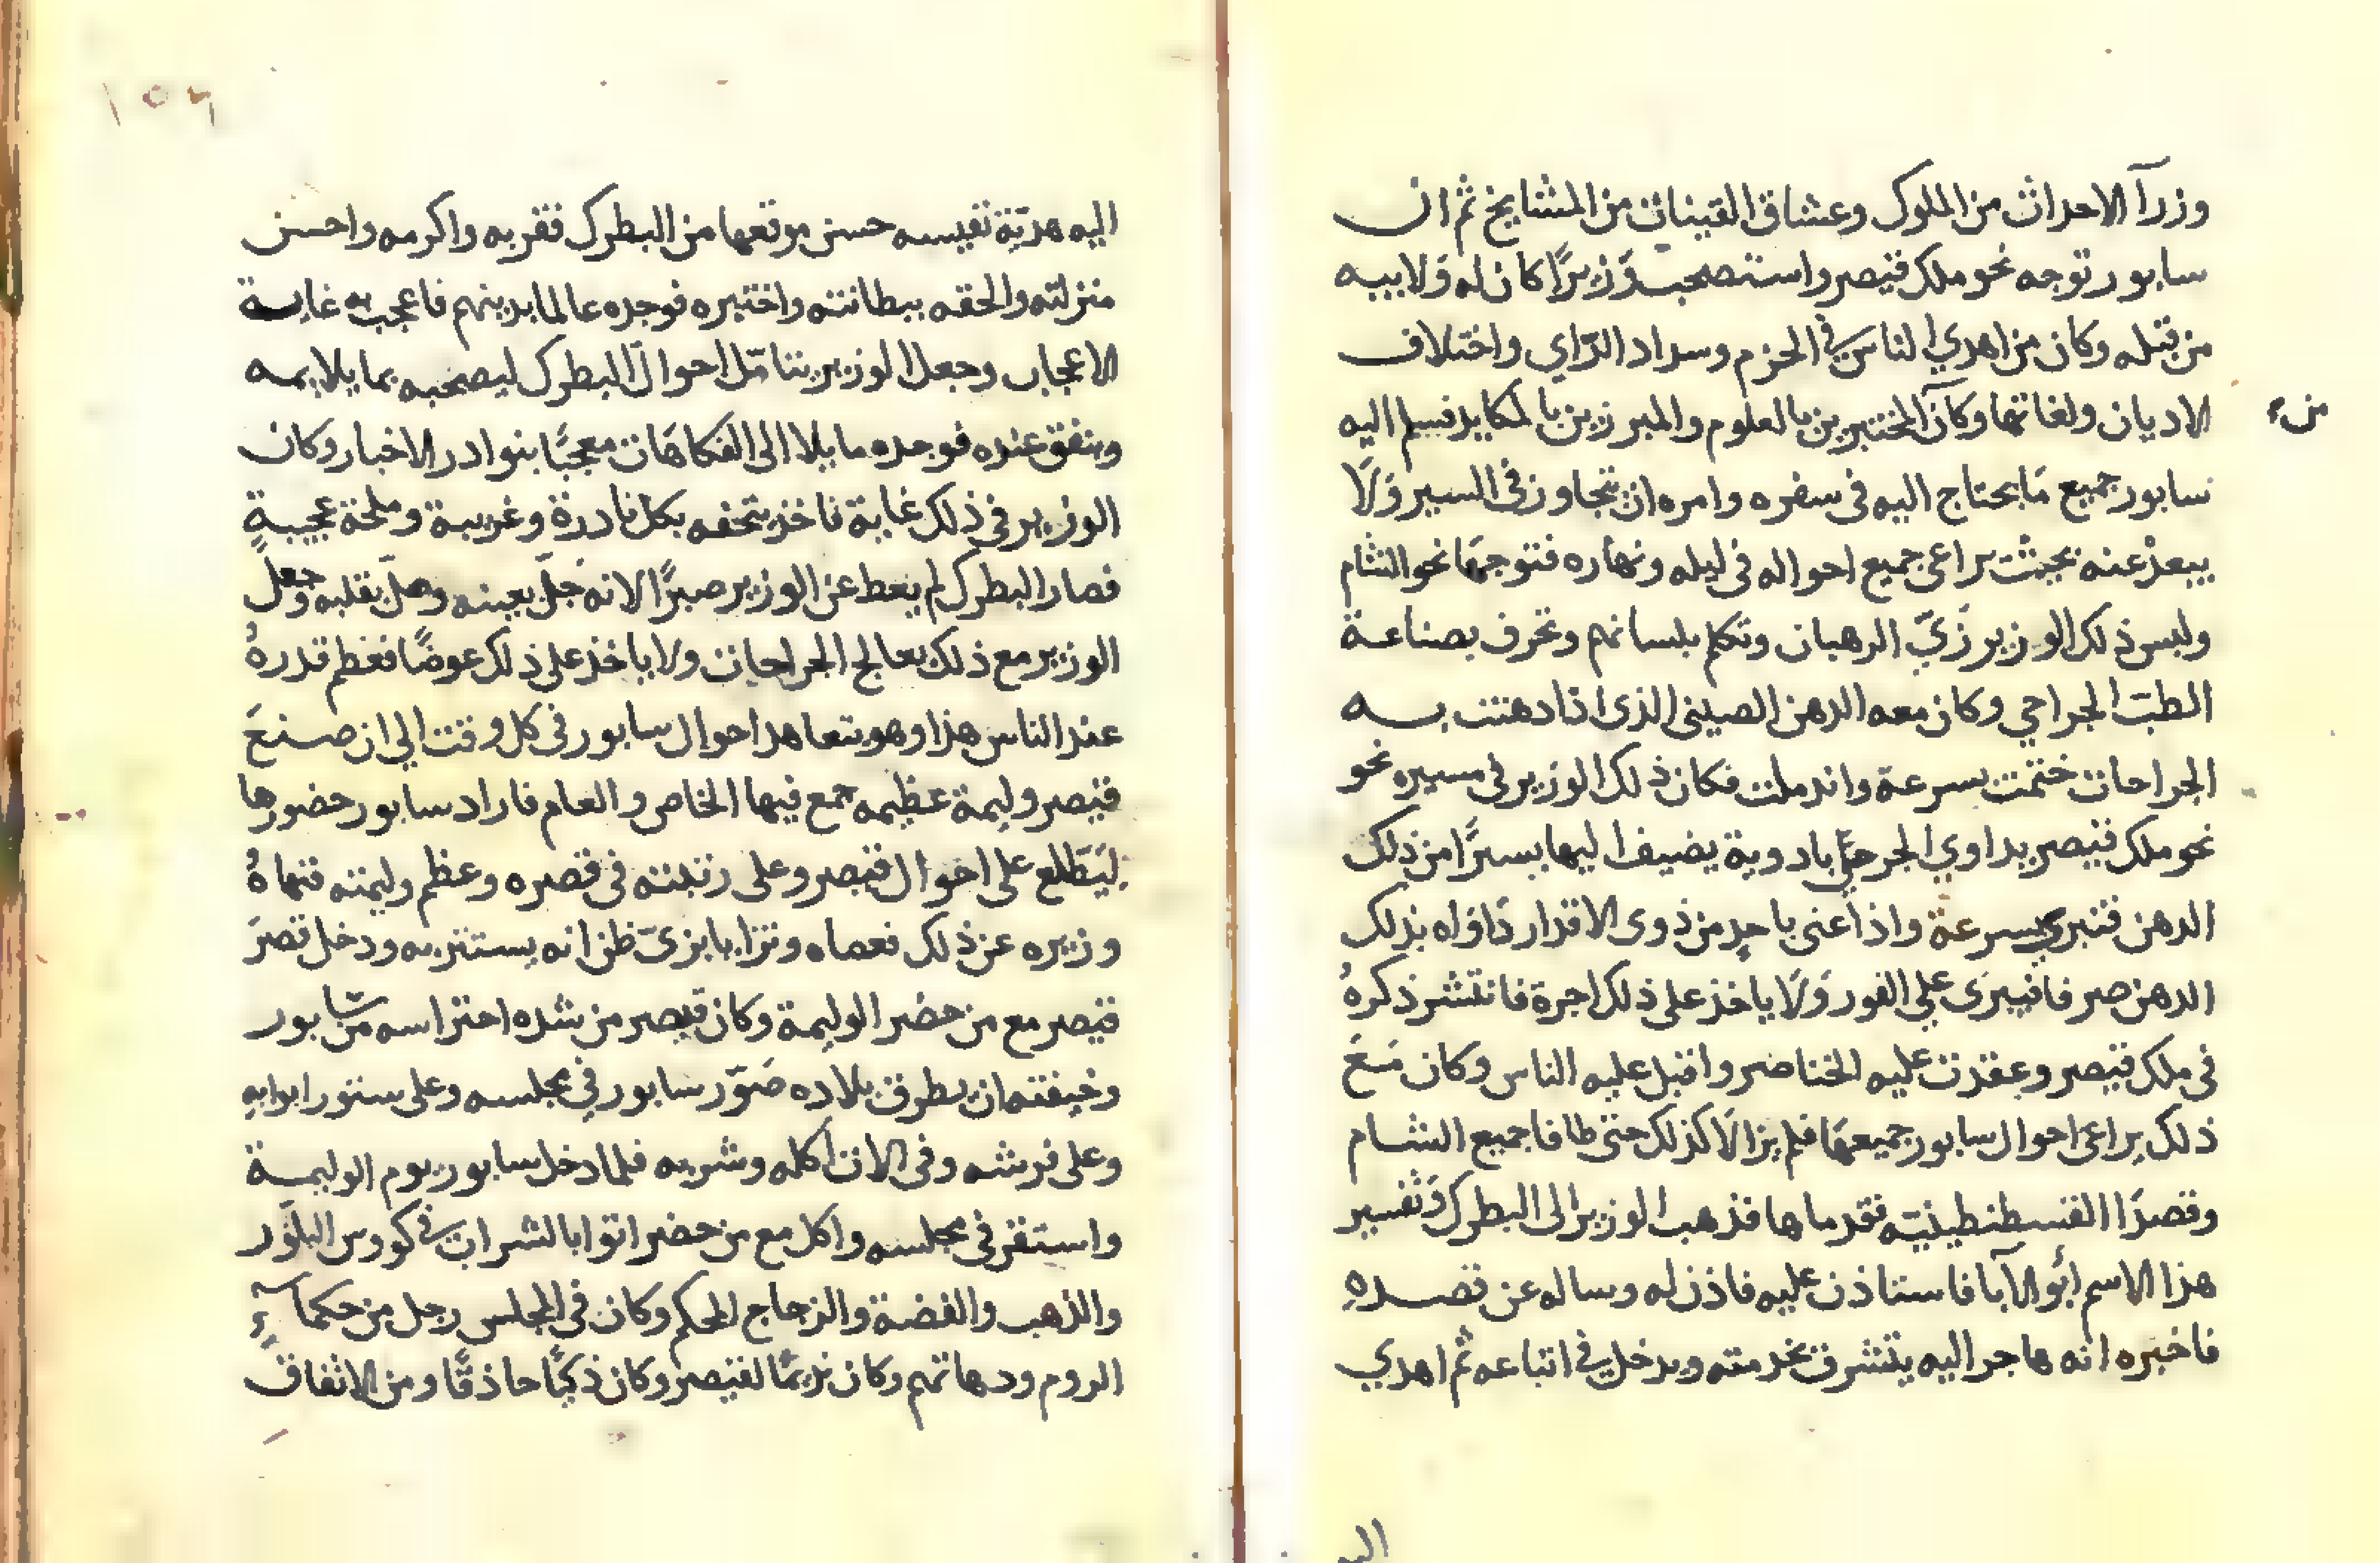 وزرآ الاحداث من الملوك وعشاق القينات من المشايخ ثم ان
سابور توجه نحو ملك قيصر واستصحب وَزيرًا كان له وَلابيه
من قبله وكان من اهدي الناس في الحزم وسداد الرّاي واختلاف
الاديان ولغاتها وكان المختبرين بالعلوم والمبرزين بالمكايد فسلم اليه
من
سابور جميع مَا يحتاج اليه فى سفره وامره ان يتجاوز فى السير وَلَا
يبعدْ عنه بحيث يراعى جميع احواله فى ليله ونهاره فتوجهَا نحو الشام
ولبس ذلك الوزير زَيّ الرهبان وتكلم بلسانهم وتحرف بصناعة
الطبّ الجراحي وكان معه الدهن الصينى الذى اذا دهنت به
الجراحات ختمت بسرعة واندملت فكان ذلك الوزير فى مسيره نحو
نحو ملك قيصر يداوي الجرحيّ بادوية يضيف اليها يسيرًا من ذلك
الدهن فتبري بسرعة واذا عنى باحدٍ من ذوى الاقدار دَاوَاه بذلك
الدهن صرفا فيبرَى علي الفور وَلَا ياخذ على ذلك اجرة فانتشر ذكرهُ
فى ملك قيصر وعقدت عليه الخناصر واقبل عليه الناس وكان مَعَ
ذلك يراعى احوال سابور جميعهَا فلم يزالَا كذلك حتى طافا جميع الشام
وقصدَا القسطنطينيّه فقدماها فذهب الوزير الى البطرك وَتفسير
هذا الاسم ابُو الآبا فاستاذن عليه فاذن له وساله عن قصدهِ
فاخبره انه هاجر اليه يتشرف بخدمته ويدخل في اتباعه ثم اهدي
اليه هديّة نفيسه حسن موقعها من البطرك فقربه واكرمه واحسن
منزلته والحقه ببطانته واختبره فوجده عالما بدينهم فاعجب به غاية
الاعجاب وجعل الوزير يتامّل احوال البطرك ليصحبه بما يلايمه
وينفق عنده فوجده مايلا الى الفكاهَات معجبًا بنوادر الاخبار وكان
الوزير فى ذلك غاية فاخذ يتحفه بكل نادرة وغريبة وملحة عجيبةٍ
فصار البطرك لم يعط عن الوزير صبرًا لانه جلّ بعينه وحلّ بقلبه وَجعل
الوزير مع ذلك يعالج الجراحات ولا ياخذ على ذلك عوضًا فعظم قدرهُ
عند الناس هذا وهو يتعاهد احوال سابور فى كل وقت الي ان صنعَ
قيصر وليمة عظيمه جمع فيها الخاص والعام فاراد سابور حضورها
لِيَطّلع على احوال قيصر وعلى رتبته فى قصره وعظم وليمته فنهاهُ
وزيره عن ذلك فعصاه وتزايا بزىّ ظن انه يستتر به ودخل قصرَ
قيصر مع من حضر الوليمة وكان قيصر من شده احتراسه من سابور
وخيفته ان يطرق بلاده صَوّر سابور في مجلسه وعلى ستور ابوابهِ
وعلى فرشه وفى الات اكله وشربه فلما دخل سابور يوم الوليمة
واستقر فى مجلسه واكل مع من حضر اتوا بالشراب فى كووس البلوّر
والذهب والفضة والزجاج المحكم وكان فى المجلس رجل من حكمآءِ
الروم ودهاتهم وكان نديمًا لقيصر وكان ذكيًّا حاذقًا ومن الاتفاق